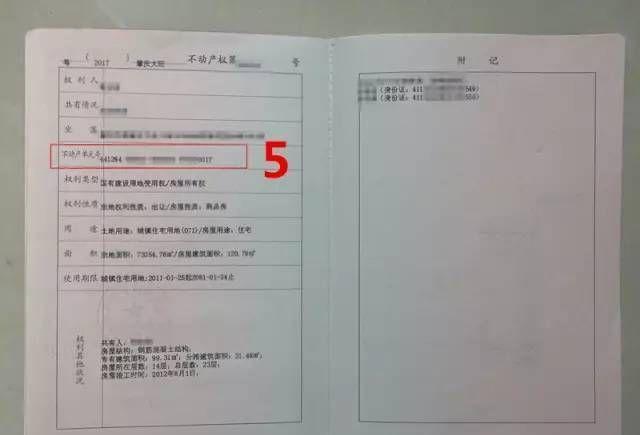 粤 ( 2017 ) 肇庆大旺 不动产权第 号
权利人
共有情况
坐落
不动产单元号 441284 0017
5
权利类型 国有建设用地使用权/房屋所有权
权利性质 宗地权利性质：出让/房屋性质：商品房
用途 土地用途：城镇住宅用地(071)/房屋用途：住宅
面积 宗地面积：73354.76㎡/房屋建筑面积：120.79㎡
使用期限 城镇住宅用地:2011-01-25起2081-01-24止
权利其他状况
共有人：
房屋结构：钢筋混凝土结构，
专有建筑面积：99.31㎡，分摊建筑面积：21.48㎡，
房屋所在层数：14层，总层数：23层，
房屋竣工时间：2012年6月1日，
附记
(身份证：411 549)
(身份证：411 550)